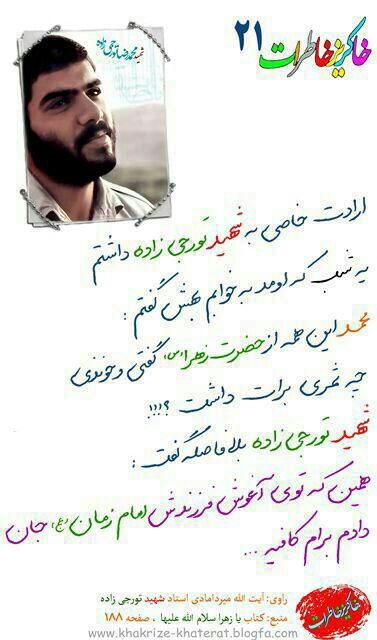 خاکریز خاطرات ۲۱
شهید محمدرضا تورجی زاده
ارادت خاصی به شهید تورجی زاده داشتم
یه شب که اومد به خوابم بهش گفتم :
محمد این همه از حضرت زهرا(س) گفتی و خوندی
چه ثمری برات داشت ؟!!!
شهید تورجی زاده بلافاصله گفت :
همین که توی آغوش فرزندش امام زمان(عج) جان
دادم برام کافیه ...
خاکریز خاطرات
راوی: آیت الله میردامادی استاد شهید تورجی زاده
منبع: کتاب یا زهرا سلام الله علیها . صفحه ۱۸۸
www.khakrize-khaterat.blogfa.com